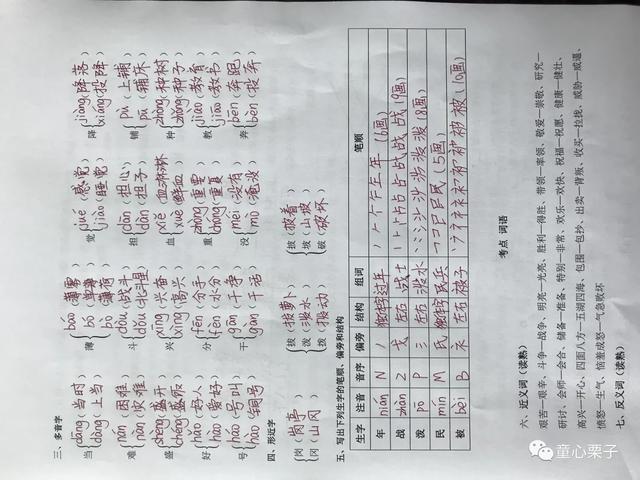 三、多音字
当 dāng(当时) dàng(上当) 薄 báo bó bò(薄荷) 觉 jué(感觉) jiào(睡觉) 降 jiàng(降落) xiáng(投降)
难 nán(困难) nàn(灾难) 斗 dòu(战斗) dǒu(北斗星) 担 dān(担心) dàn(担子) 铺 pù(上铺) pū(铺床)
盛 shèng(盛开) chéng(盛饭) 兴 xīng(兴奋) xìng(高兴) 血 xiě(血淋淋) xuè(鲜血) 种 zhòng(种树) zhǒng(种子)
好 hǎo(好人) hào(爱好) 分 fēn(分手) fèn(水分) 重 zhòng(重要) chóng(重复) 教 jiào(教育) jiāo(教书)
号 háo(号叫) hào(铜号) 干 gàn(干事) gān(干活) 没 méi(没有) mò(淹没) 奔 bēn(奔跑) bèn(投奔)
四、形近字
岗(岗亭) 拔(拔萝卜) 披(披着)
冈(山冈) 泼(泼水) 坡(山坡)
拨(拨动) 破(破坏)
五、写出下列生字的笔顺、偏旁和结构
生字 注音 音序 偏旁 结构 组词 笔顺
年 nián N 丿 独体字 过年 (6画)
战 zhàn Z 戈 左右 战士 (9画)
泼 pō P 氵 左右 泼水 (8画)
民 mín M 民 独体字 民兵 (5画)
被 bèi B 衤 左右 被子 (10画)
考点 词语
六、近义词(读熟)
艰苦—艰辛、斗争—战争、明亮—光亮、胜利—得胜、带领—率领、敬爱—崇敬、研究—
研讨、会师—会合、储备—准备、特别—非常、欢乐—欢快、祝福—祝愿、健康—健壮、
高兴—开心、四面八方—五湖四海、包围—包抄、出卖—背叛、收买—拉拢、威胁—威逼、
愤怒—生气、恼羞成怒—气急败坏
七、反义词(读熟)
童心栗子